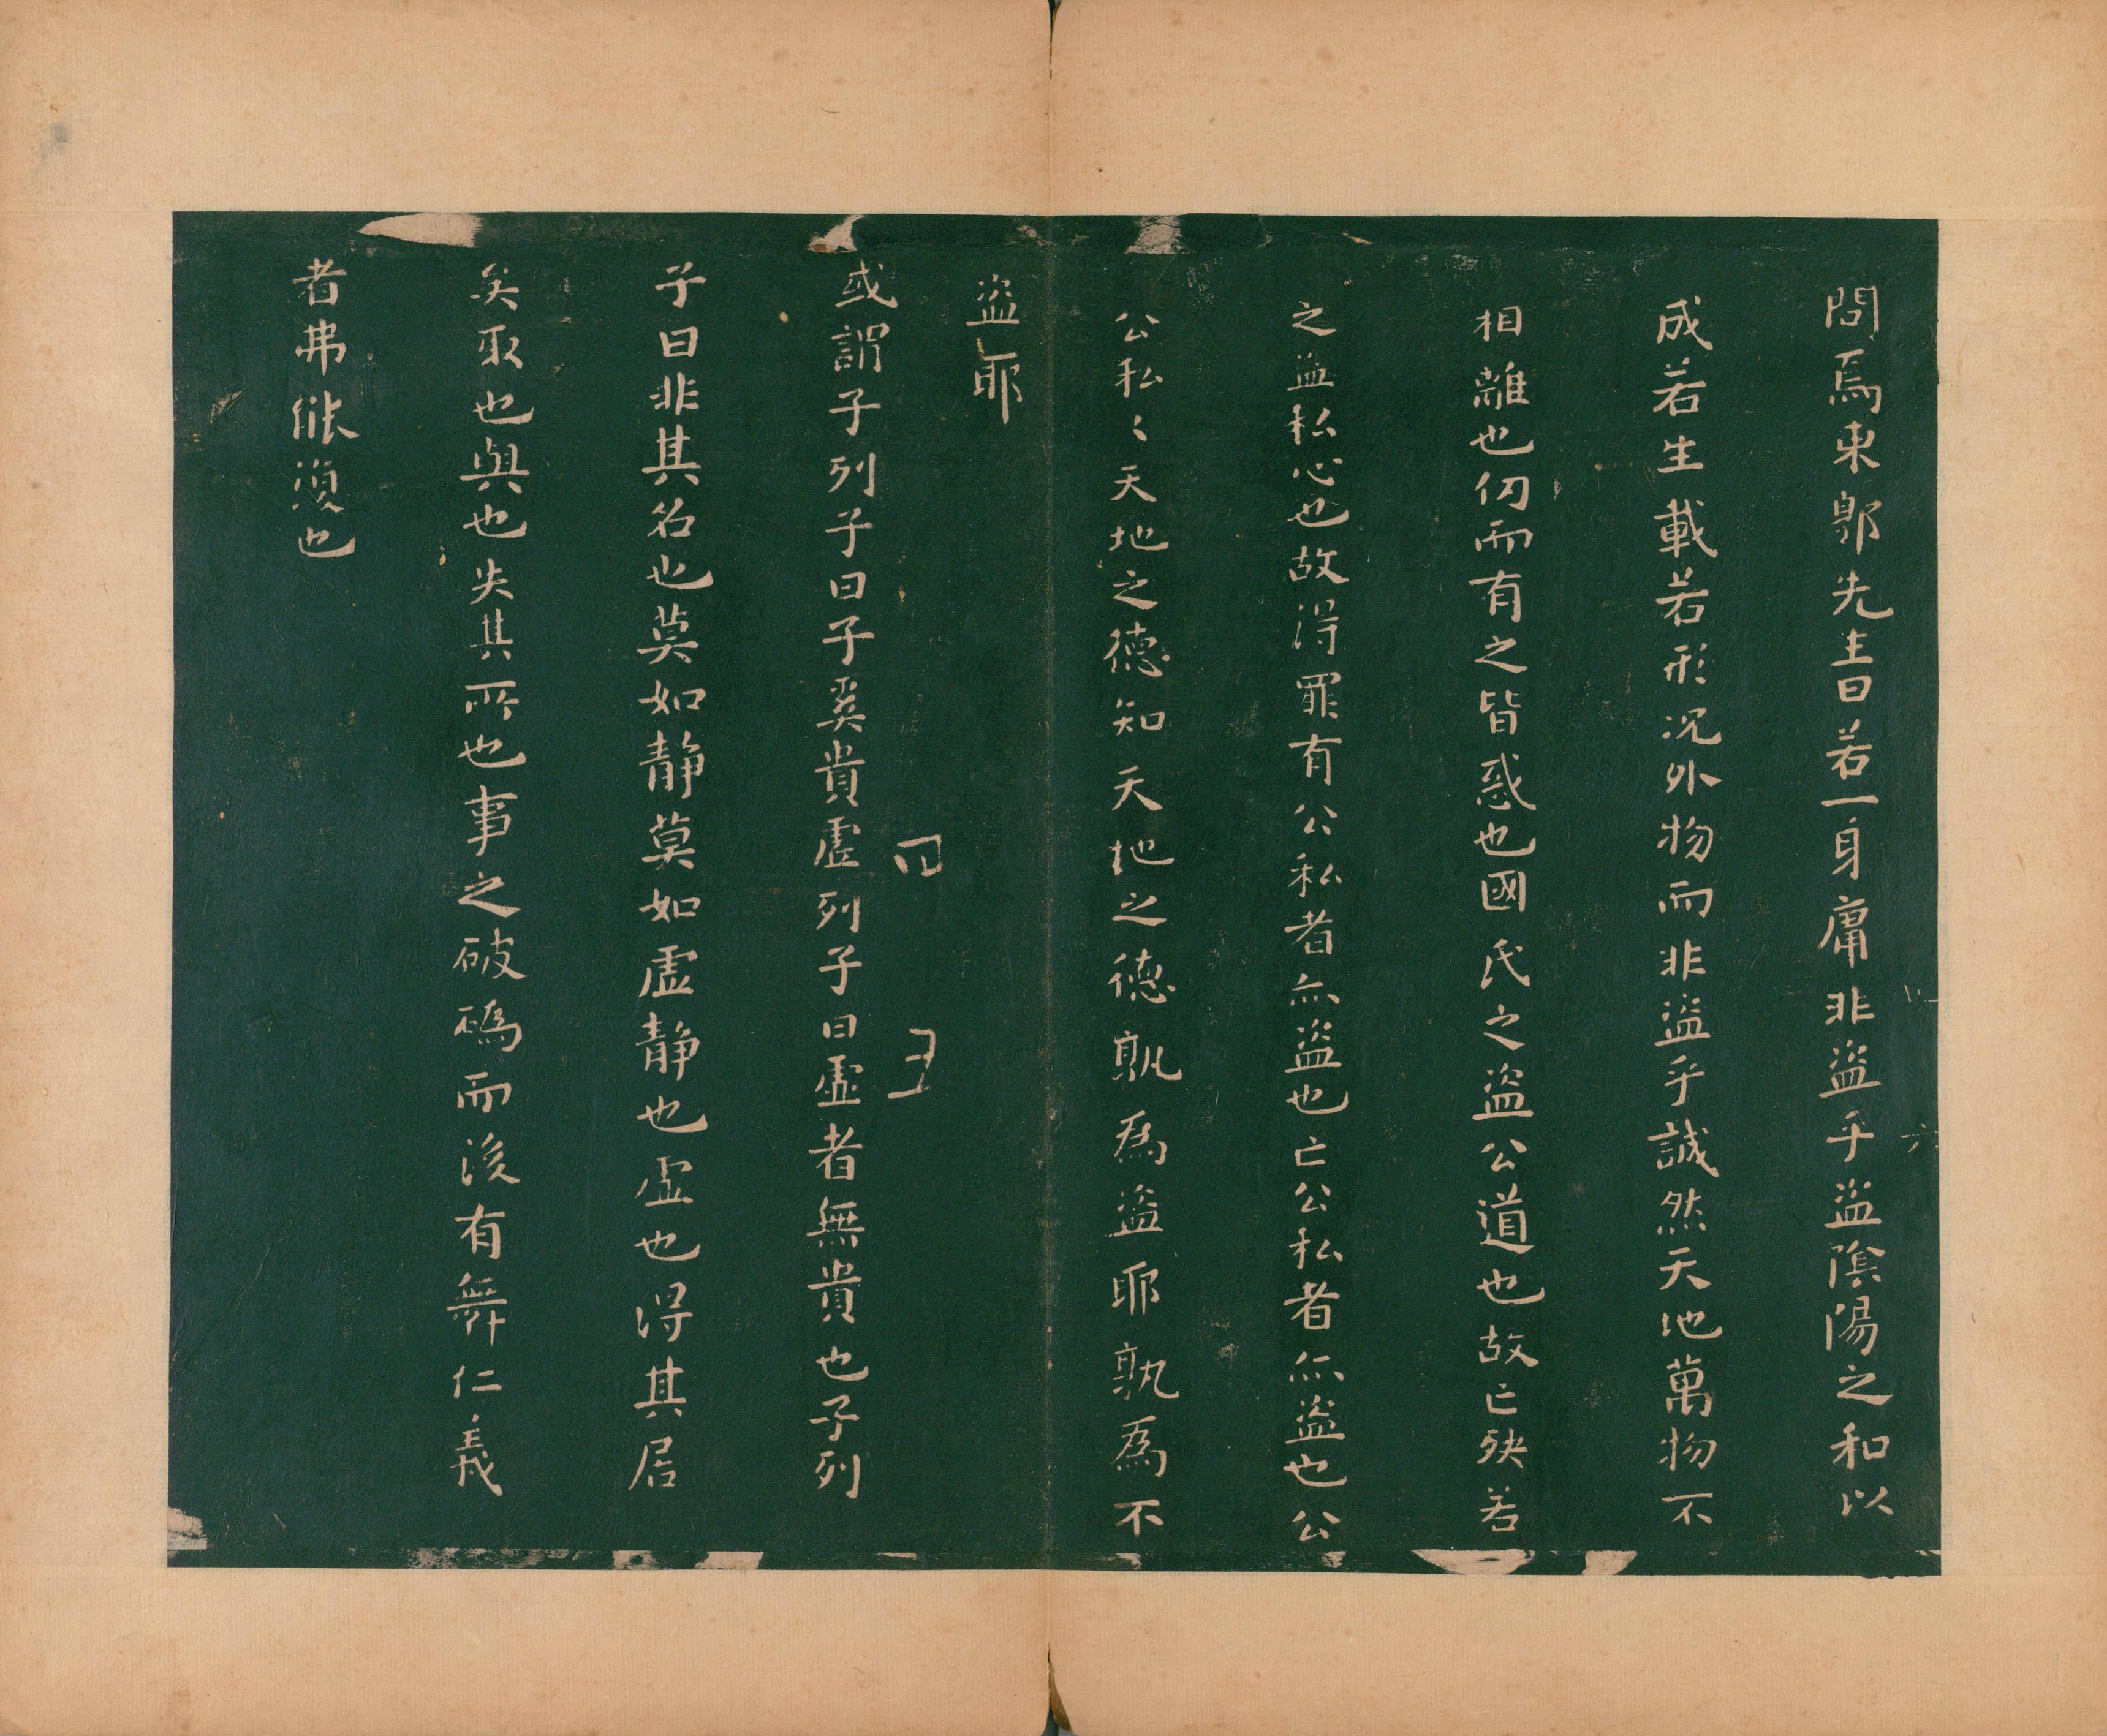 問焉東郭先生曰若一身庸非盜乎盜陰陽之和以
成若生載若形况外物而非盜乎誠然天地萬物不
相離也仞而有之皆惑也國氏之盜公道也故亡殃若
之盜私心也故得罪有公私者亦盜也亡公私者亦盜也公
公私〻天地之德知天地之德孰為盜耶孰為不
盜耶
或謂子列子曰子奚貴虛列子曰虛者無貴也子列
子曰非其名也莫如静莫如虛静也虛也得其居
矣取也與也失其所也事之破䃣而後有舞仁義
者弗能復也